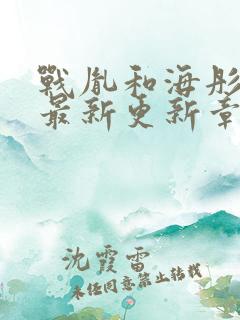 戰胤和海彤
最新更新章
沈霞雷
未经同意禁止转载